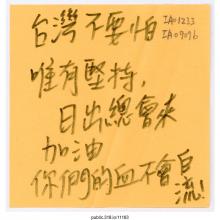 台灣不要怕
IA01233
IA09096
唯有堅持,
日出總會來
加油
你們的血不會白
流!
public.318.io/11163